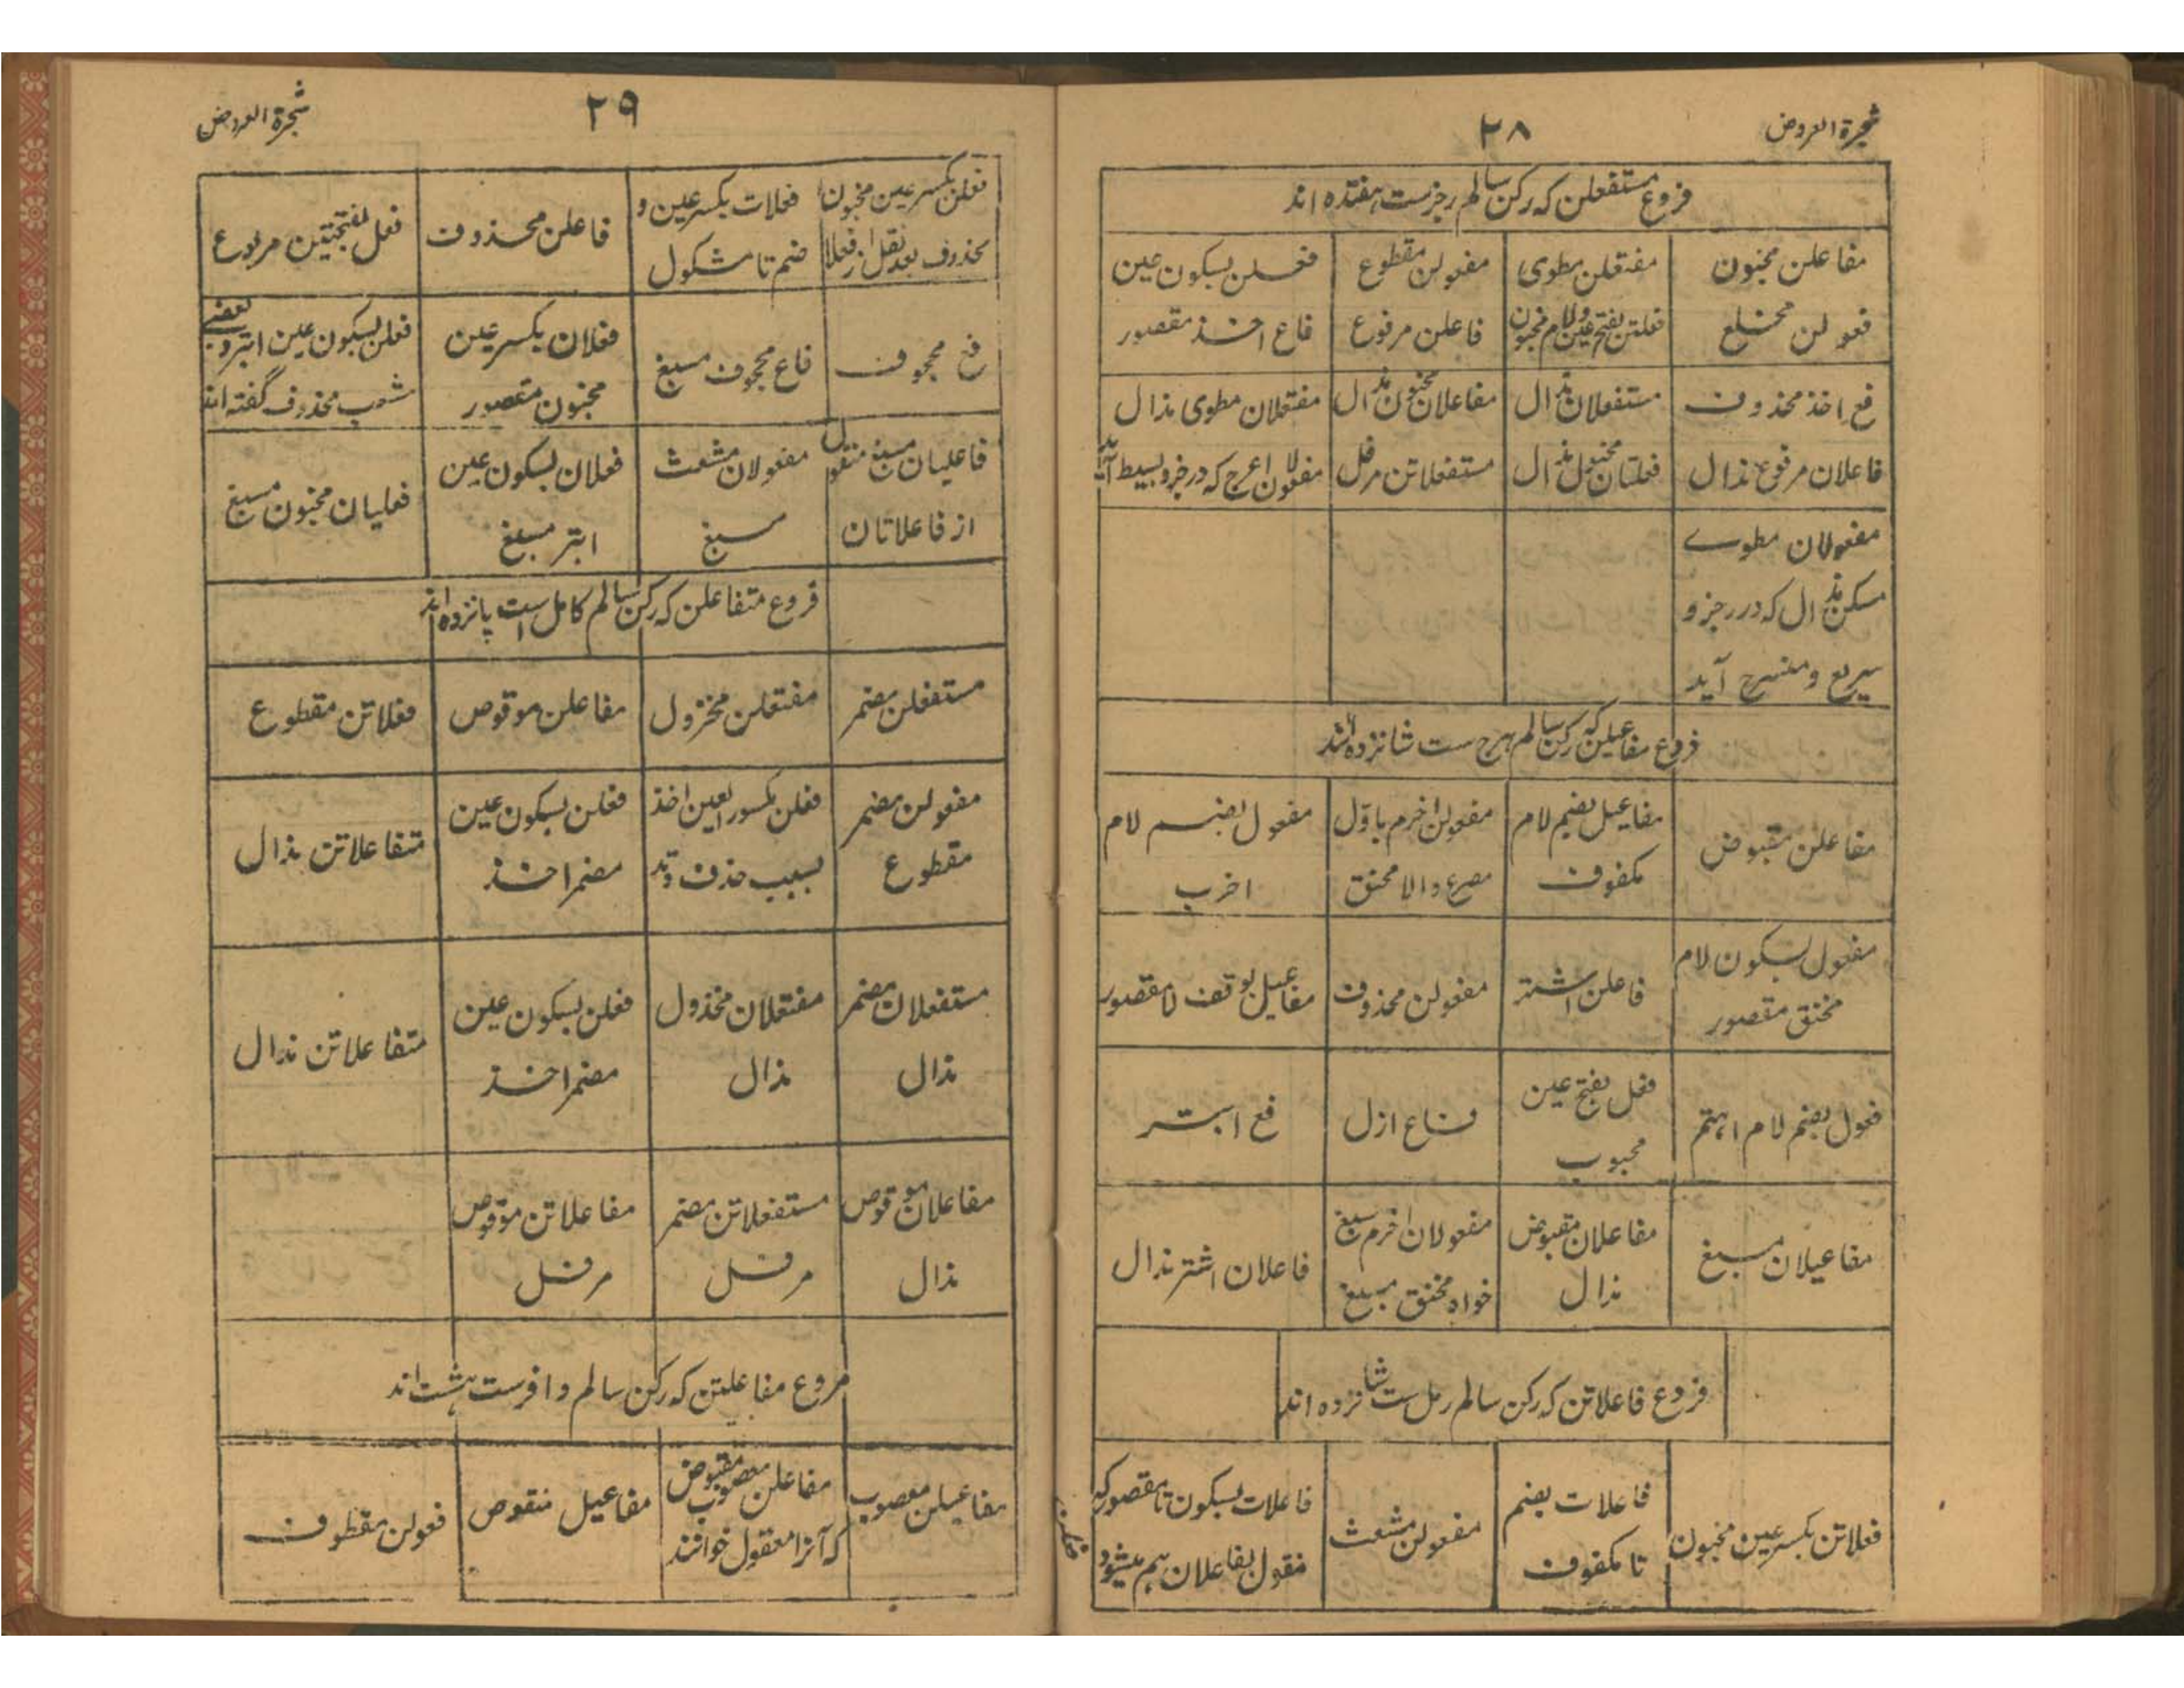 شجرة العروض
۲۸
فروع مستفعلن که رکن سالم رجزست هفتده اند
مفاعلن مخبون
مفتعلن مطوی
مفعولن مقطوع
فعلن بسکون عین
فعولن مخلع
فعلتن بفتح عین و لام مخبول
فاعلن مرفوع
فاع احذ مقصور
فع احذ محذوف
مستفعلان مذال
مفاعلان مخبون مذال
مفتعلان مطوی مذال
فاعلان مرفوع مذال
فعلتان مخبول مذال
مستفعلاتن مرفل
مفعولان اعرج که در رجز و بسیط آید
مفعولان مطوے
مسکن مذال که در رجز و
سریع و منسرح آید
فروع مفاعیلن که رکن سالم هزج ست شانزده اند
مفاعلن مقبوض
مفاعیل بضم لام
مکفوف
مفعولن اخرم باول
مصرع والا مخنق
مفعول بضم لام
اخرب
مفعول بسکون لام
مخنق مقصور
فاعلن اشتر
مفعولن محذوف
مفاعیل بوقف لام مقصور
فعول بضم لام اهتم
فعل بفتح عین
مجبوب
فاع ازل
فع ابتر
مفاعیلان مسبغ
مفاعلان مقبوض
مذال
مفعولان اخرم مسبغ
خواه مخنق مسبغ
فاعلان اشتر مذال
فروع فاعلاتن که رکن سالم رمل ست شانزده اند
فعلاتن بکسر عین مخبون
فاعلات بضم
تا مکفوف
مفعولن مشعث
فاعلات بسکون تا مقصور که
منقول بفاعلان هم میشود
فعلن
شجرة العروض
۲۹
فعلن بکسر عین مخبون
محذوف بعد نقل از فعلا
فعلات بکسر عین و
ضم تا مشکول
فاعلن محذوف
فعل بفتحتین مربوع
فع مجحوف
فاع مجحوف مسبغ
فعلان بکسر عین
مخبون مقصور
فعلن بسکون عین ابتر و بعضے
محذوف گفته اند
فاعلیان مسبغ منقول
از فاعلاتان
مفعولان مشعث
مسبغ
فعلان بسکون عین
ابتر مسبغ
فعلیان مخبون مسبغ
فروع متفاعلن که رکن سالم کامل ست پانزده اند
مستفعلن مضمر
مفتعلن مخزول
مفاعلن موقوص
فعلاتن مقطوع
مفعولن مضمر
مقطوع
فعلن مکسور العین احذ
بسبب حذف وتد
فعلن بسکون عین
مضمر احذ
متفاعلاتن مذال
مستفعلان مضمر
مذال
مفتعلان مخذول
مذال
فعلن بسکون عین
مضمر احذ
متفاعلاتن مذال
مفاعلان موقوص
مذال
مستفعلاتن مضمر
مرفل
مفاعلاتن موقوص
مرفل
فروع مفاعلتن که رکن سالم وافرست هشت اند
مفاعیلن معصوب
مفاعلن معصوب مقبوض
که آنرا معقول خوانند
مفاعیل منقوص
فعولن مقطوف